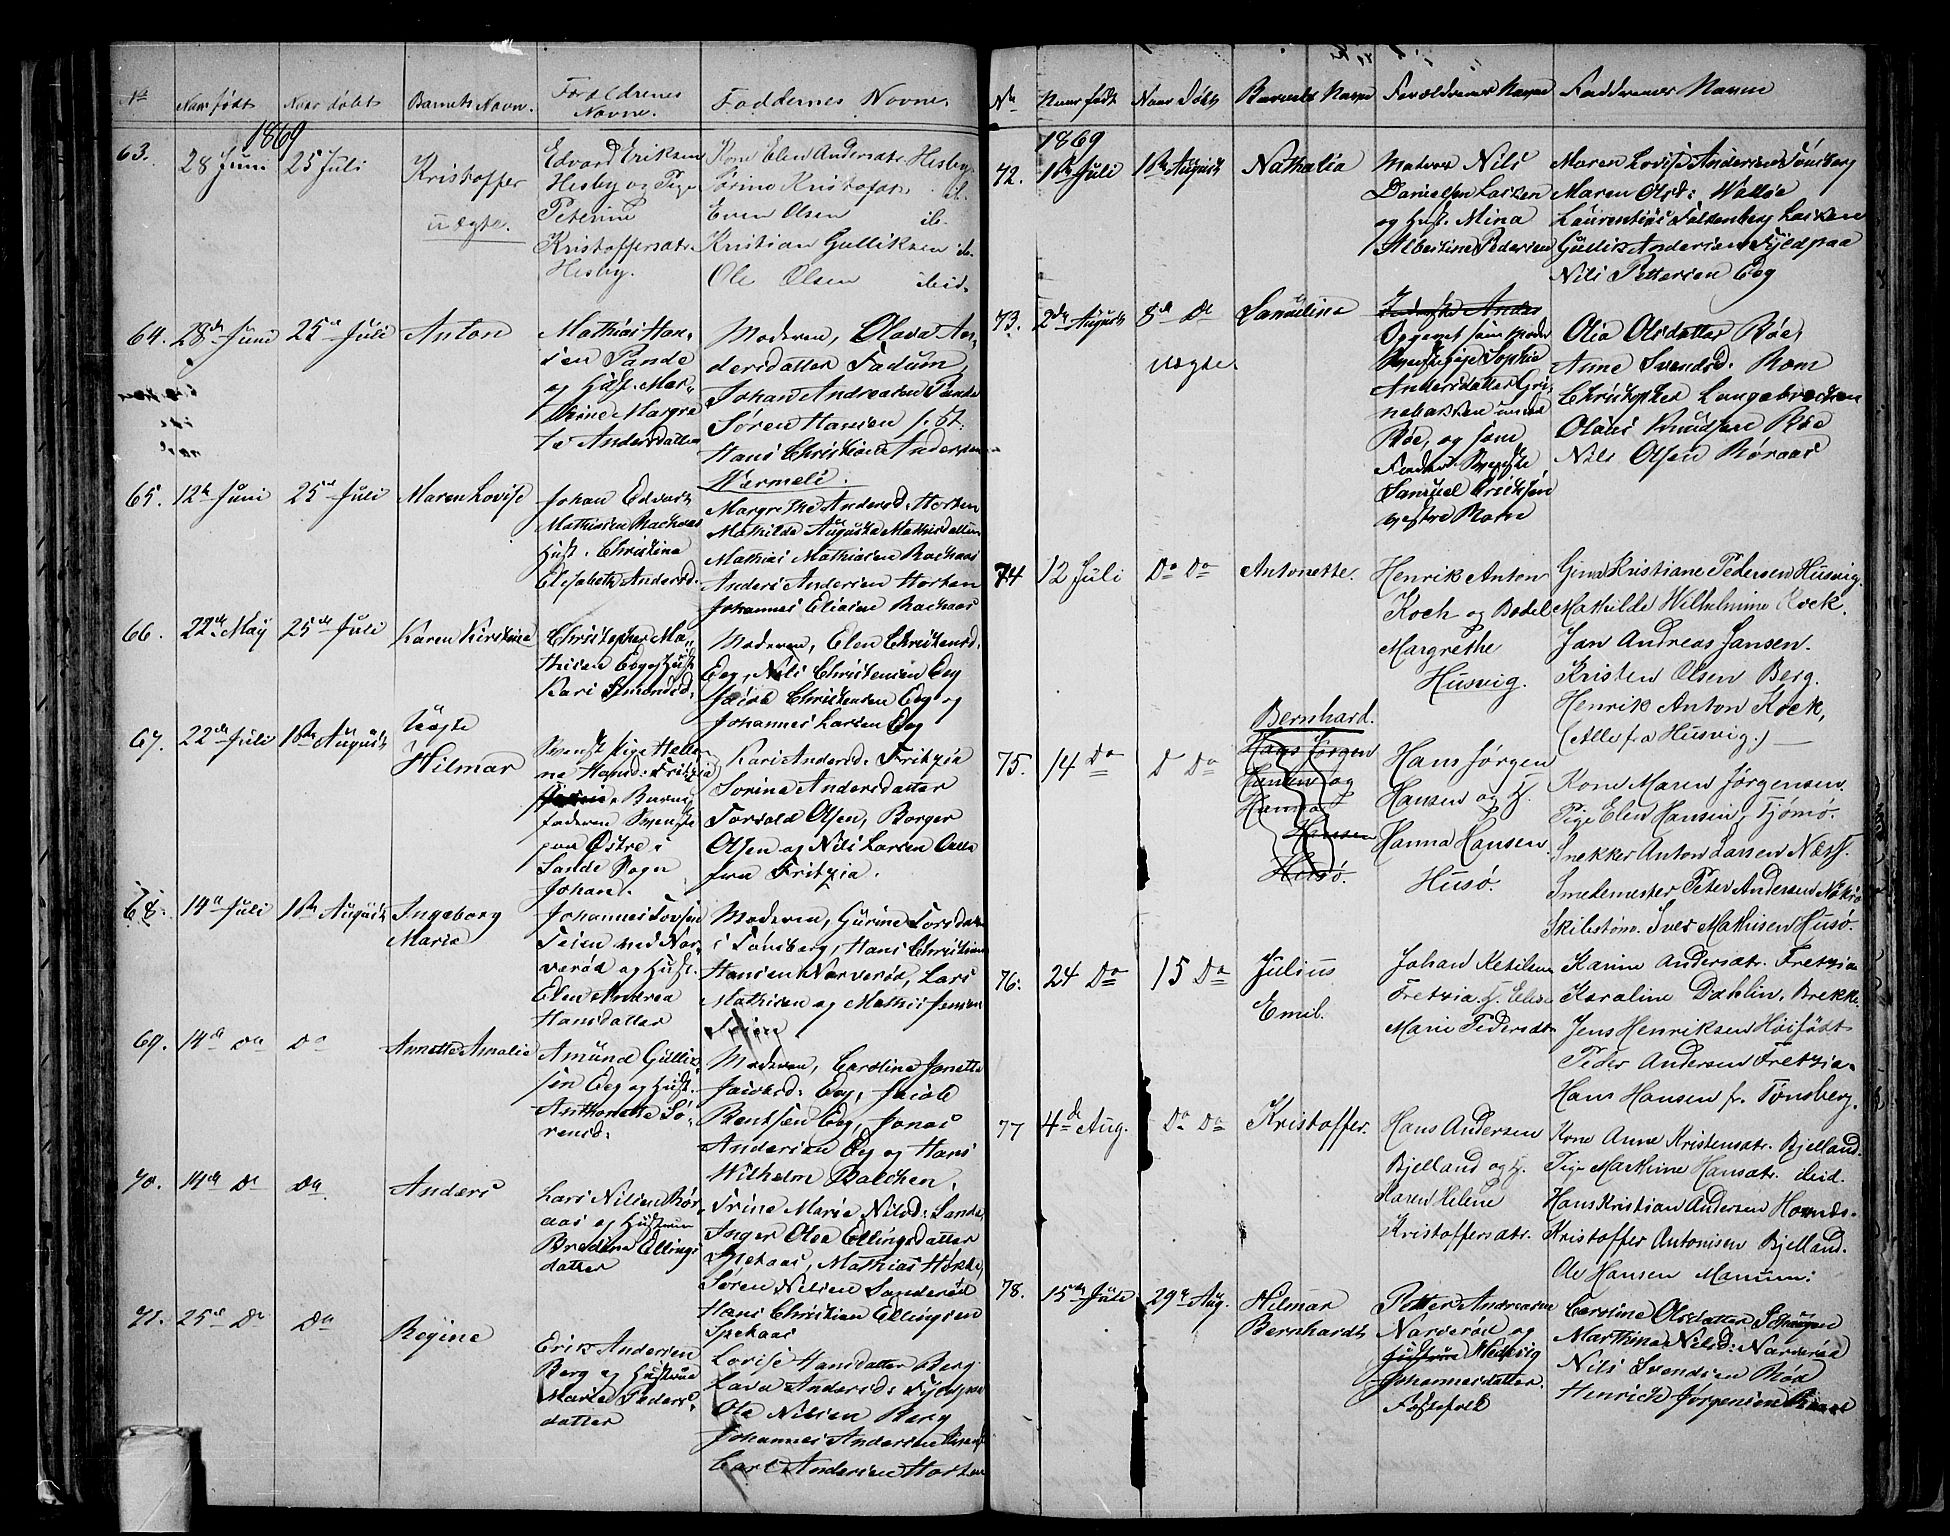 No
Naar født
Naar døbt
Barnets Navn.
Forældrenes Navne.
Faddernes Navne.
1869
63.
28 Juni
25 Juli
Kristoffer
uægte.
Edvard Eriksen
Hesby og Pige
Peterine
Kristoffersdtr.
Hesby.
Kone Elen Andersdtr. Hesby
Sørine Kristofdtr. ib.
Even Olsen ib.
Kristian Gulliksen ib.
Ole Olsen ibid.
64.
28de Juni
25de Juli
Anton
Mathias Han-
sen Sande
og Hust. Mar-
thine Margre
te Andersdatter
Moderen, Olava An-
dersdatter Fadum,
Johan Andreasen Sande
Søren Hansen
Hans Christian Andersen
Værmeli.
65.
12te Juni
25de Juli
Maren Lovise
Johan Edvart
Mathisen
Hust. Christina
Elisabeth Andersd.
Margrethe Andersd: Horten
Mathilde Auguste Mathisdatter
Mathias Mathiasen
Anders Andersen Horten
Johannes Eliasen
66.
22de May
25de Juli
Karen Kirstine
Christopher Ma-
thisen Eeg og Hust.
Kari Simonsd.
Moderen, Elen Christensd.
Eeg, Nils Christensen Eeg
Jacob Christensen Eeg og
Johannes Larsen Eeg
67.
22de Juli
1ste August
Uægte
Hilmar
Pige Helle-
ne Hansd: Fritzøa
Barne
faderen
paa Østre i
Sande Sogn
Johan.
Kari Andersd: Fritzøa
Sorine Andersdatter
Torvald Olsen, Borger
Olsen og Nils Larsen Alle
fra Fritzøa.
68.
19de Juli
1ste August
Ingeborg
Maria
Johannes
Teien ved Nar-
verød og Hust.
Elen Andrea
Hansdatter
Moderen, Gurine
i Tønsberg, Hans Christian
Hansen Narverød, Lars
Mathisen og Mathis Jensen
69.
14de do
Do
Annette Amalie
Amund Gullik-
sen Eeg og Hust.
Anthonette Sø-
rensd.
Moderen, Caroline Janette
Jacobsd: Eeg, Jacob
Bentsen Eeg, Jonas
Andersen Eeg og Hans
Wilhelm Balchen.
70.
14de Do
Do
Anders
Lars Nilsen Rør-
aas og Hustrue
Bredine Ellings
datter
Trine Marie Nilsd: Sande
Inger Olea Ellingsdatter
Mathias
Søren Nilsen Sanderød
Hans Christian Ellingsen
71.
25de Do
Do
Regine
Erik Andersen
Berg og Hustrue
Maria Peders-
datter
Lovise Hansdatter Berg
Lava Andersd:
Ole Nilsen Berg
Johannes Andersen
Carl Andersen Horten
No
Naar født
Naar Døbt
Barnets Navn
Forældrenes Navne
Faddernes Navne
1869
72.
1ste Juli
1ste August
Nathalia
Matros Nils
Danielsen
og Hust. Mina
Albertine Pedersen
Maren Lovise Andersen Tønsberg
Maren Olsd: Valløe
Laurentius
Gullik Andersen
Nils Pettersen Eeg
73.
2de August
8de Do
uægte.
Samuline
Opgivet som Moder
Pige Sophie
Andersdatter Gri-
nebakken under
Røe, og som
Fader
Samuel Eriksen
vestre Rom
Olea Olsdatter Røe,
Anne Svendsd. Rom
Christopher Langebrekken
Olaus Knudsen Røe
Nils Olsen Røraas
74
12 Juli
Do Do
Antonette.
Henrik Anton
Koch og Bodel
Margrethe
Husvig.
Gina Kristiane Pedersen Husvig.
Mathilde Wilhelmine Kock.
Jan Andreas Jansen.
Kristen Olsen Berg.
Henrik Anton Kock,
(Alle fra Husvig.)
75.
14 Do
D Do
Bernhard.
Hans Jørgen
Hansen og
Hanna
Hansen
Husø.
Hans Jørgen
Hansen og H.
Hanna Hansen
Husø.
Kone Maren Jørgensen.
Pige Elen Hansen, Tjømø.
Snekker Anton Larsen Næss.
Smedemester Peter Andersen
Skibstøm. Iver Mathisen Husø.
76.
24 Do
15 Do
Julius
Emil.
Johan Ketilsen
Fretzia H. Elise
Marie Pedersdtr
Karine Andersdtr. Fretzia
Karaline Dahlin, Brekke
Jens Henriksen Høifødt
Peder Andersen Fretzia
Hans Hansen fr. Tønsberg.
77
4de Aug.
Do Do
Kristoffer.
Hans Andersen
Bjelland og H.
Karen Helene
Kristoffersdtr.
Kone Anne Kristensdtr. Bjelland.
Pige Mathine Hansdtr. ibid.
Hans Kristian Andersen
Kristoffer Antonisen Bjelland.
Ole Hansen Manum:
78.
15de Juli
29de Aug.
Hilmar
Bernhardt
Petter Andreasen
Narverød og
Hustrue Hedevig
Johannesdatter.
Caroline Olsdatter
Marthine Nilsd: Narverød
Nils Svendsen Røe
Henrich Jørgensen